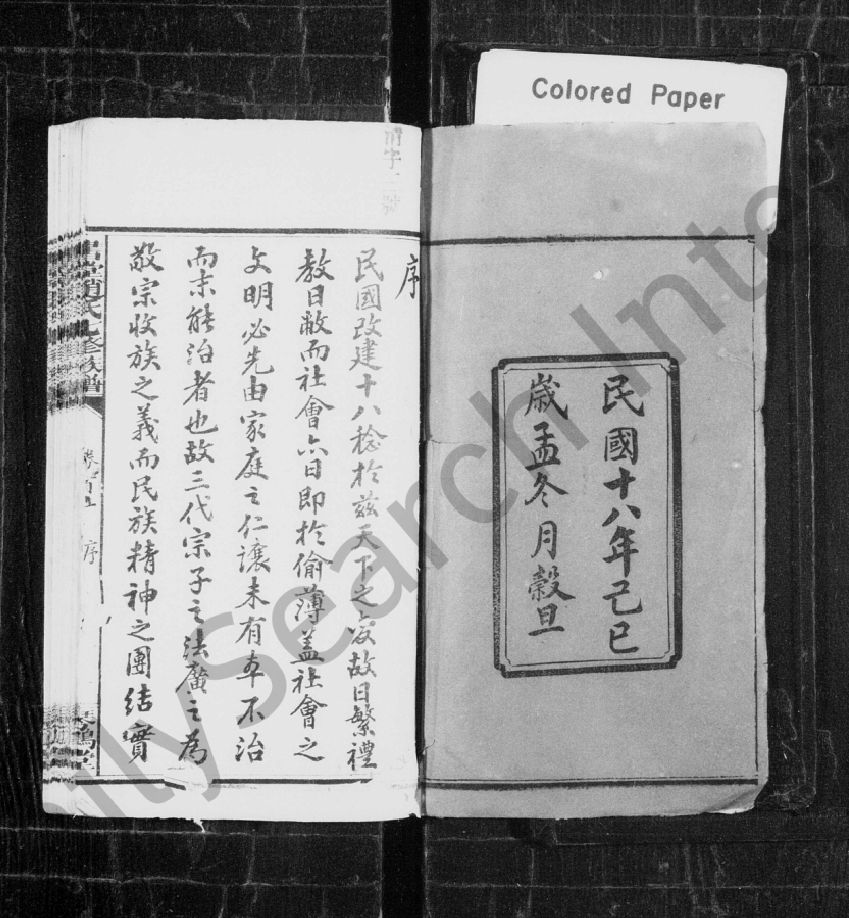 Colored Paper
民國十八年己巳
歲孟冬月穀旦
序
民國改建十八稔於兹天下之變故日繁禮
教日敝而社會亦日即於偷薄蓋社會之
文明必先由家庭之仁讓未有本不治
而末能治者也故三代宗子之法廣之為
敬宗收族之義而民族精神之團結實
趙氏七修族譜
序
FamilySearch Inte